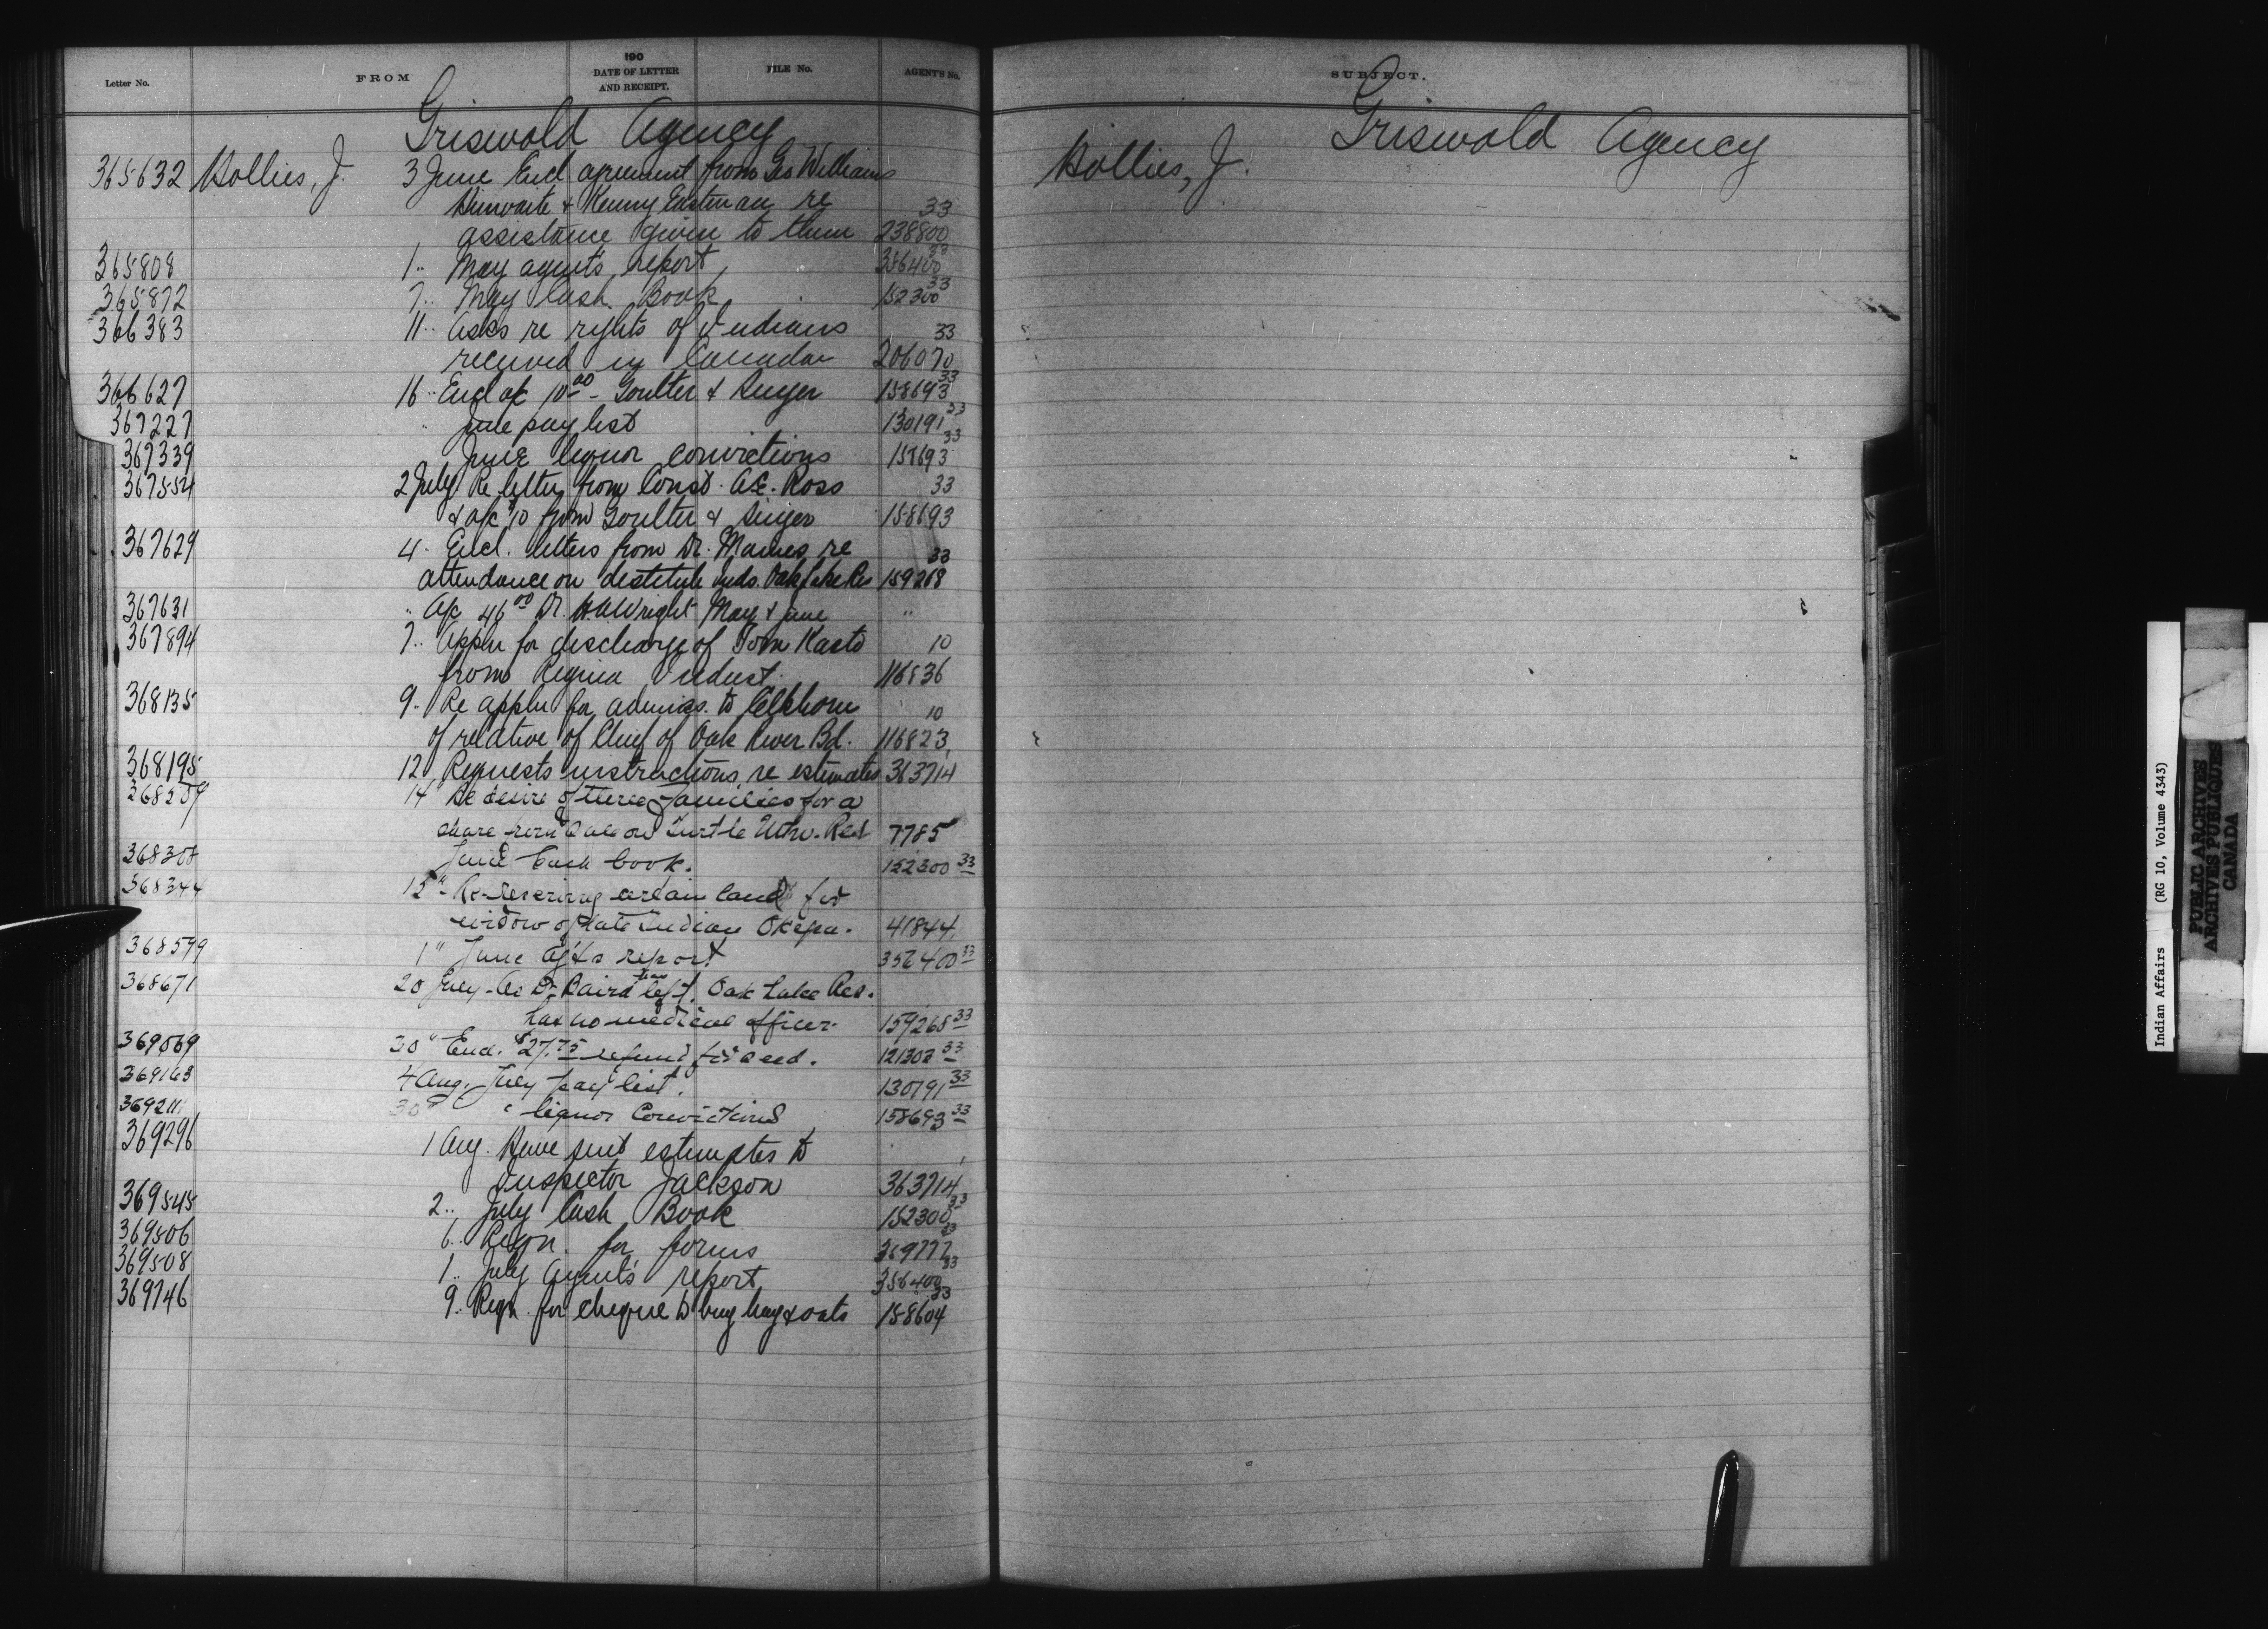 Letter No. FROM 190 DATE OF LETTER AND RECEIPT. FILE No. AGENT'S No.
Griswold Agency
365632 Hollies, J. 3 June Encl agreement from Geo Williams
& Kenny Eastman re 33
assistance given to them 238800
365808 1 .. May agent's report, 356400 33
365872 7 .. May Cash Book 152300 33
366383 11 .. Asks re rights of Indians 33
received in Canada 206070
366627 16 .. Encl a/c 10.00 - Goulter & Singer 158693 33
367227 .. June pay list 130191 33
367339 June liquor convictions 158693 33
367554 2 July Re letter from Const. A.E. Ross 33
& a/c $10 from Goulter & Singer 158693
367629 4 .. Encl. letters from Dr. Maines re 33
attendance on destitute Inds. Oak Lake Res 159268
367631 .. A/c 46.00 Dr. H.A. Wright May & June ..
367894 7 .. Appln for discharge of Tom Kasto 10
from Regina Indust. 116836
368135 9 .. Re appln for admiss. to Elkhorn 10
of relative of Chief of Oak River Bd. 116823
368195 12 .. Requests instructions re estimates 363714
368209 14 Re desire of three families for a
share from sale on Turtle Mtn. Res 7785
368308 June Cash book. 152300 33
368344 15 " Re-reserving certain land for
widow of late Indian 41844
368599 1 " June Agt's report 356400 33
368671 20 July - As Dr. Baird has left, Oak Lake Res.
has no medical officer. 159268 33
369069 30 " Encl. $27.75 refund for seed. 121303 33
369163 4 Aug. July pay list. 130191 33
369211 30 " " liquor Convictions 158693 33
369296 1 Aug. Have sent estimates to
Inspector Jackson 363714
369545 2 .. July Cash Book 152300 33
369506 6 .. Reqn. for forms 369777 33
369508 1 .. July Agent's report 356400 33
369746 9 .. Reqn. for cheque to buy hay & oats 158604 33
SUBJECT.
Griswold Agency
Hollies, J.
Indian Affairs (RG 10, Volume 4343)
PUBLIC ARCHIVES
ARCHIVES PUBLIQUES
CANADA